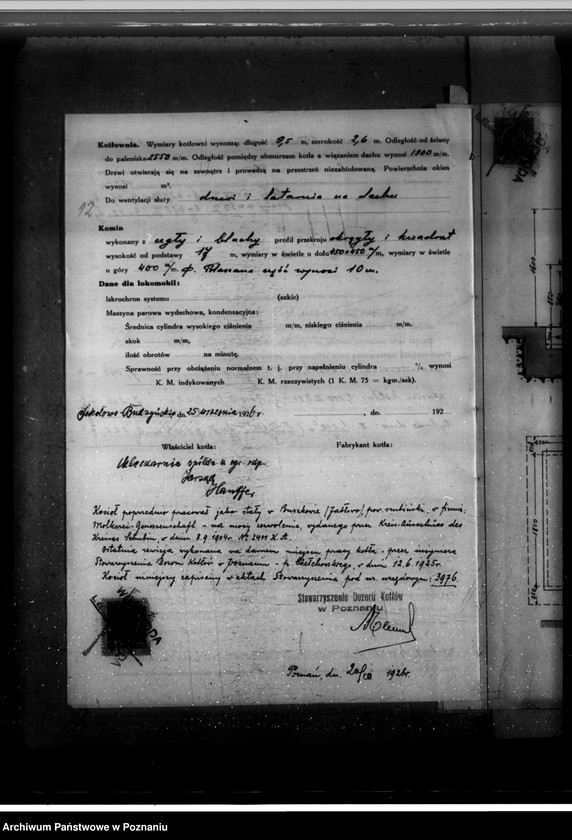 Kotłownia. Wymiary kotłowni wynoszą: długość 9,5 m, szerokość 2,6 m. Odległość od ściany
do paleniska 2550 m/m. Odległość pomiędzy obmurzem kotła a wiązaniem dachu wynosi 1800 m/m.
Drzwi otwierają się na zewnątrz i prowadzą na przestrzeń niezabudowaną. Powierzchnia okien
wynosi m².
12
Do wentylacji służy drzwi i latarnia na dachu
Komin
wykonany z cegły i blachy profil przekroju okrągły i kwadrat
wysokość od podstawy 17 m, wymiary w świetle u dołu 450x450 m/m, wymiary w świetle
u góry 400 m/m. ф. Blaszana część wynosi 10 m.
Dane dla lokomobil:
Iskrochron systemu (szkic)
Maszyna parowa wydechowa, kondensacyjna:
Średnica cylindra wysokiego ciśnienia m/m, niskiego ciśnienia m/m.
skok m/m,
ilość obrotów na minutę.
Sprawność przy obciążeniu normalnem t. j. przy napełnieniu cylindra % wynosi
K. M. indykowanych K. M. rzeczywistych (1 K. M. 75 = kgm./sek).
Sokołowo-Budzyńskie dn. 25 września 1926 r. , dn. 192
Właściciel kotła: Fabrykant kotła:
Mleczarnia spółdz. z ogr. odp.
Zarząd
Hauffer
Kocioł poprzednio pracował jako stały w firmie:
Molkerei-Genossenschaft - na mocy zezwolenia, wydanego przez Kreis-Ausschuss des
Kreises Schubin, w dniu 8.9.1904r. Nr. 2411 K.A.
Ostatnia rewizja wykonana na dawnem miejscu pracy kotła - przez inżyniera
Stowarzyszenia Dozoru Kotłów w Poznaniu - p. w dniu 12.6.1925r.
Kocioł niniejszy zapisany w aktach Stowarzyszenia pod nr. urzędowym: 3976.
Stowarzyszenie Dozoru Kotłów
w Poznaniu
Poznań, dn. 1926r.
1600
1800
Archiwum Państwowe w Poznaniu